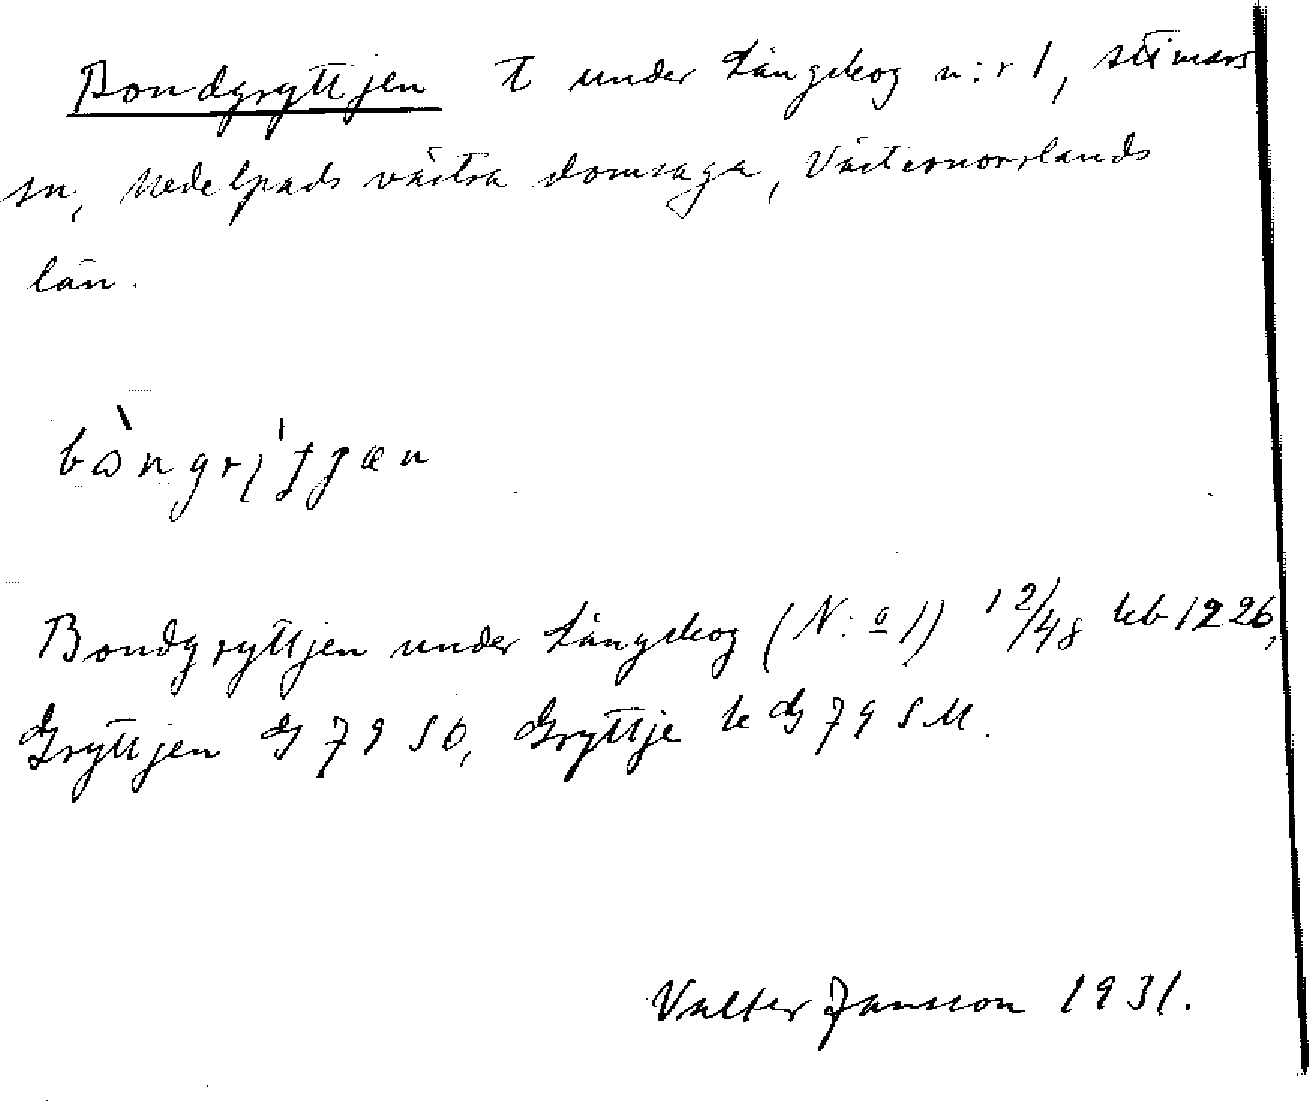 Bondgryttjen t under Långskog n:r 1, Attmars
sn, Medelpads västra domsaga, Västernorrlands
län.
Bondgryttjen under Långskog (N:o 1) 12/48 1226,
Gryttjen G 79 SO, Gryttje k G 79 SM.
Valter Jansson 1931.